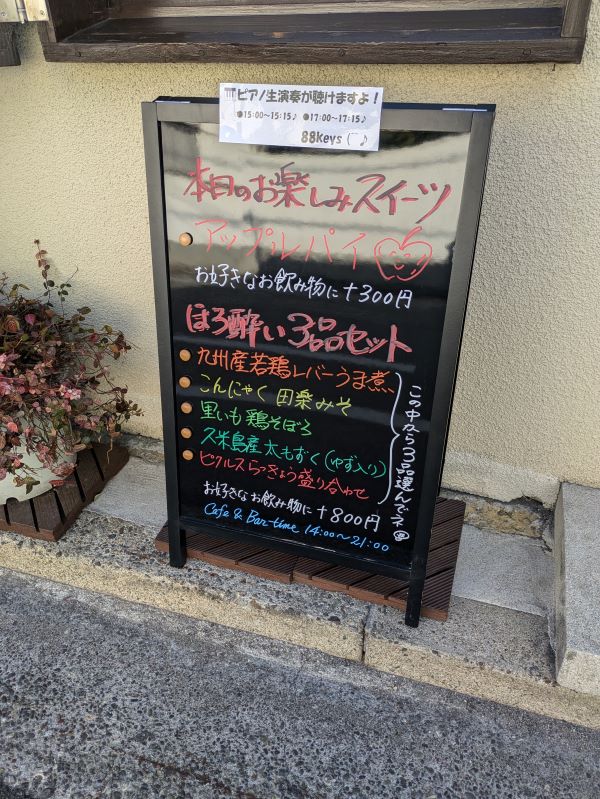 ピアノ生演奏が聴けますよ！
●15:00～15:15♪ ●17:00～17:15♪
88Keys
本日のお楽しみスイーツ
アップルパイ
お好きなお飲み物に＋300円
ほろ酔い3品セット
九州産若鶏レバーうま煮
こんにゃく 田楽みそ
里いも鶏そぼろ
久米島産太もずく(ゆず入り)
ピクルスらっきょう盛り合わせ
この中から3品選んでネ
お好きなお飲み物に＋800円
Cafe & Bar-time 14:00～21:00